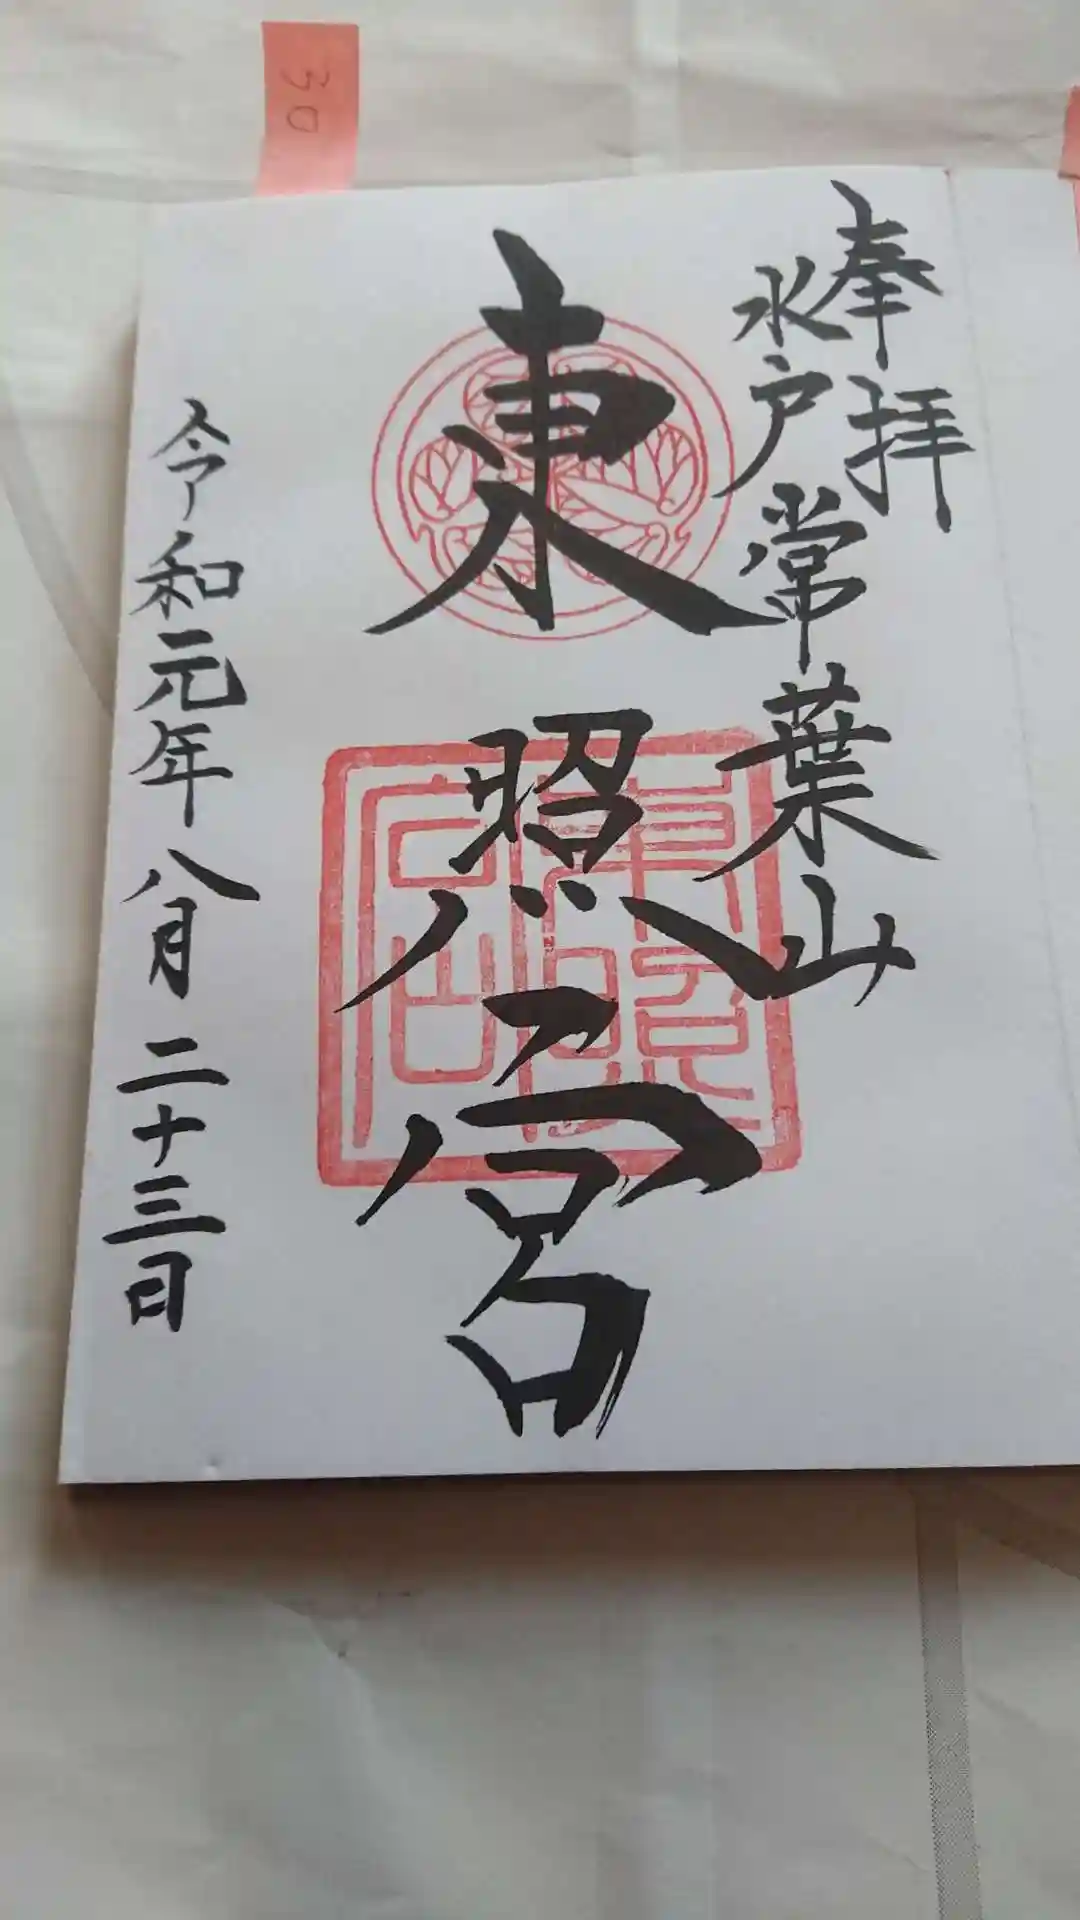 奉拝
水戸常葉山
東照宮
令和元年八月二十三日
30